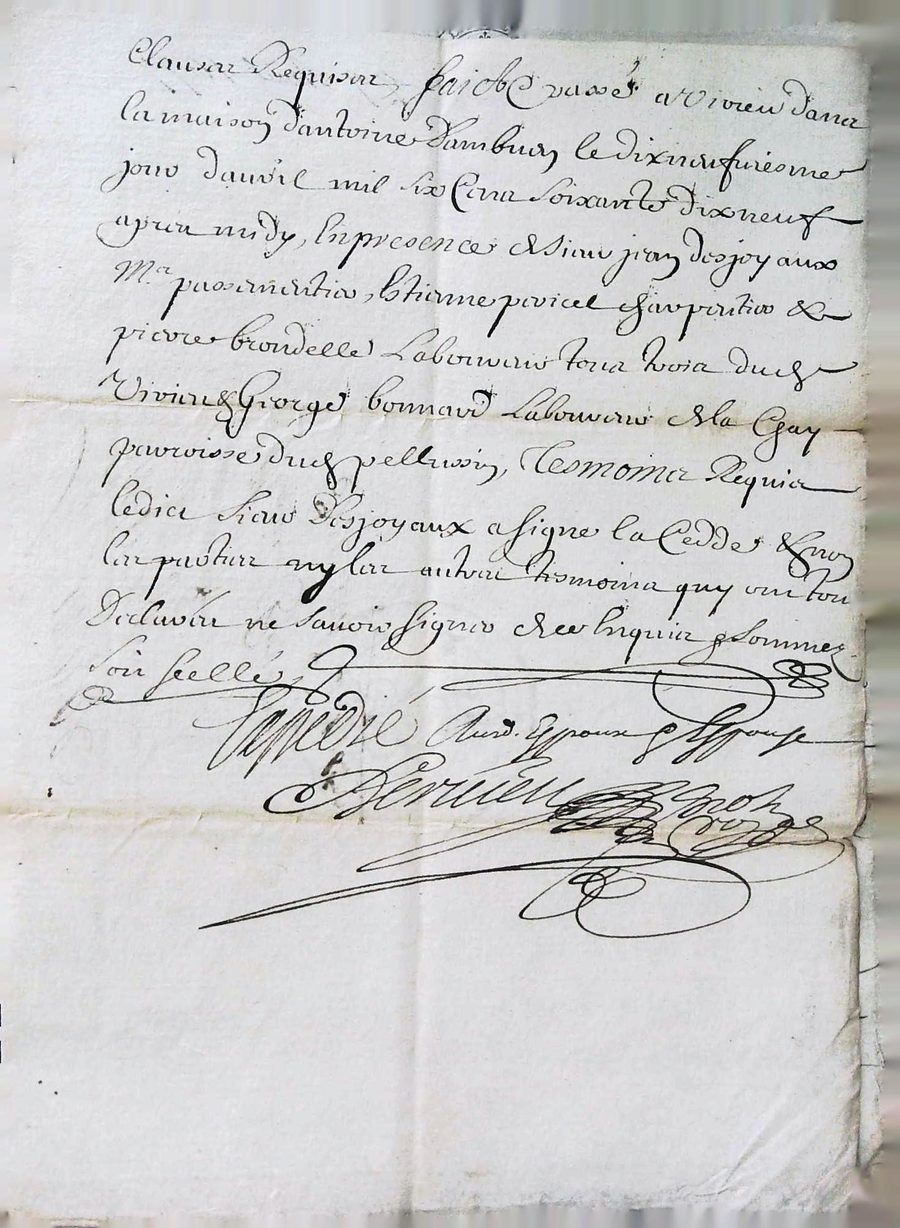 clauses Requises, faict & passé a Virieu dans
la maison d'antoine Dambuen le dixneufviesme
jour d'auvril mil six Cens soixante dixneuf
apres midy, En presence de sieur jean desjoyaux
Mre passementier, Estienne poicel charpentier &
pierre brondelle Laboureur tous trois dud.
Virieu & George bonnard Laboureur de la Chay
parroisse dud pellussin, Tesmoins Requis
ledict sieur Desjoyaux a signe la Cedde & non
les parties ny les autres tesmoins quy ont tou
Declairé ne savoir signer de ce Enquis & Sommez
soit scellé,
Expedié Ausd. Espoux & Espouse
Not Royal